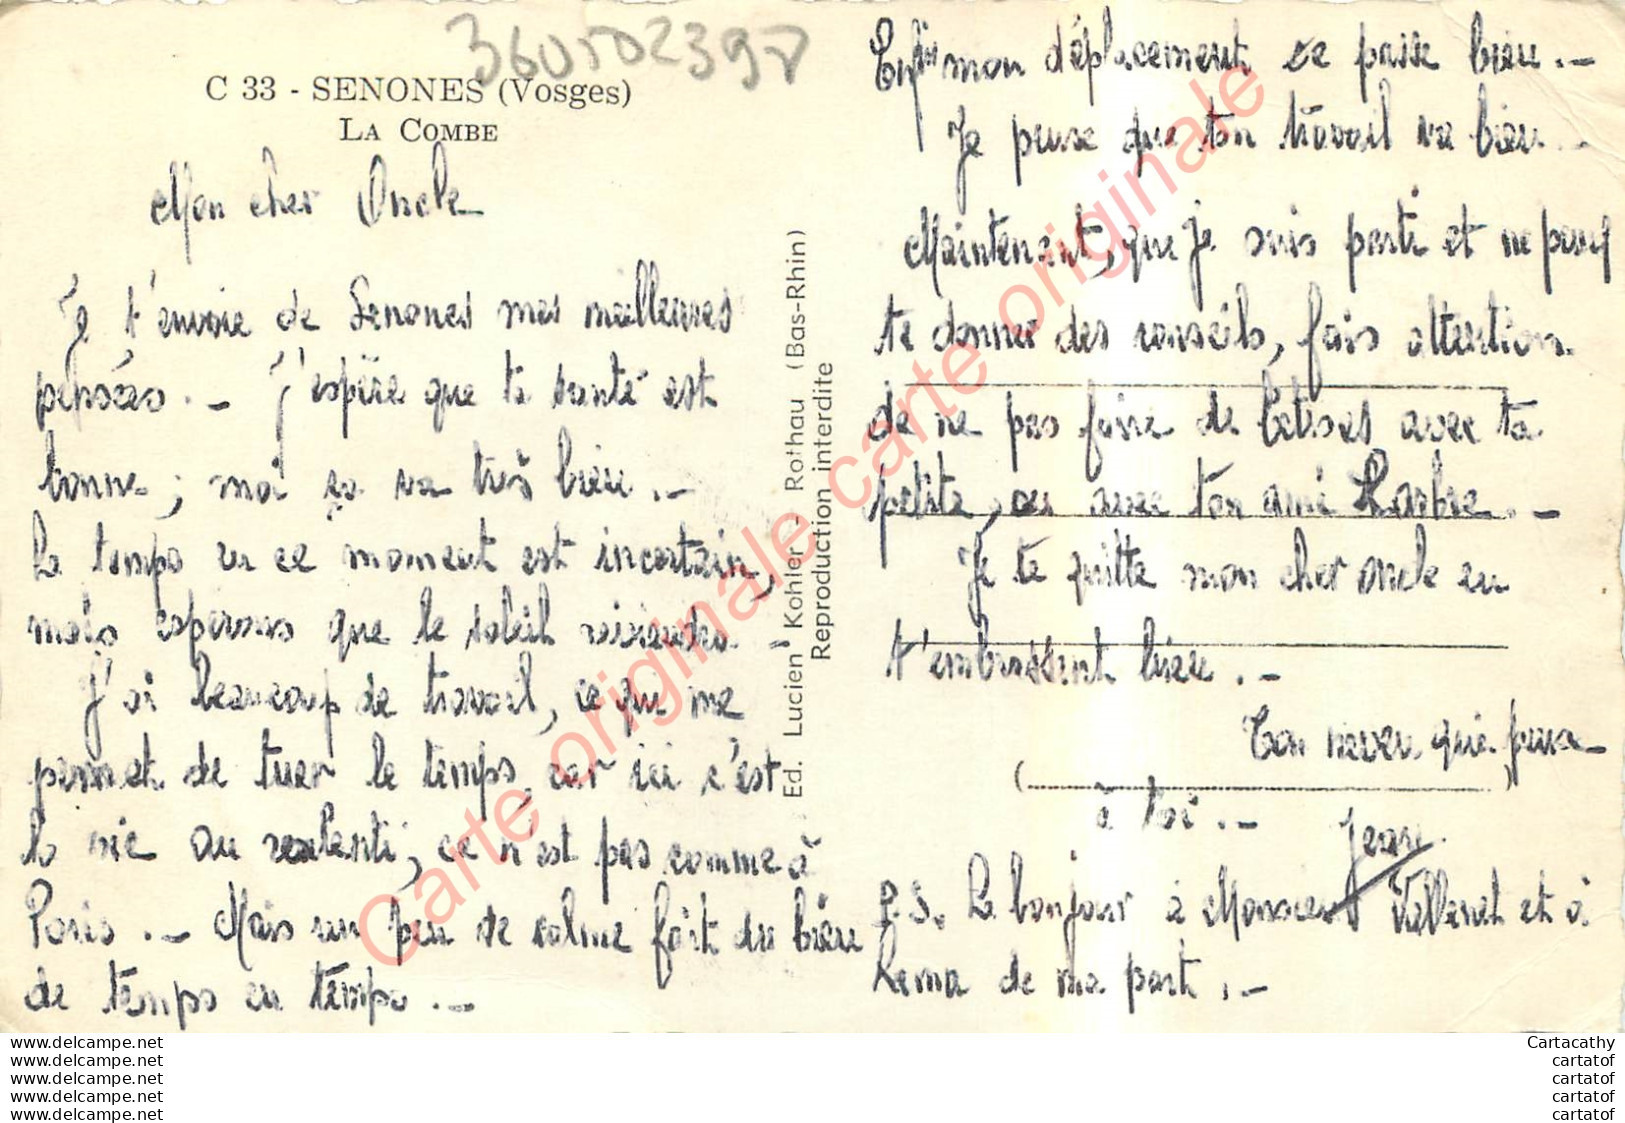 360502397
C 33 - SENONES (Vosges)
LA COMBE
Mon cher Oncle
Je t'envoie de Senones mes meilleures
pensées. - J'espère que ta santé est
bonne ; moi ça va très bien. -
Le temps en ce moment est incertain,
mais esperons que le soleil reviendra. -
J'ai beaucoup de travail, ce qui me
permet de tuer le temps, car ici c'est
la vie au ralenti, ce n'est pas comme à
Paris. - Mais un peu de calme fait du bien
de temps en temps. -
Ed. Lucien Kohler - Rothau (Bas-Rhin)
Reproduction interdite
Enfin mon déplacement se passe bien. -
Je pense que ton travail va bien -
Maintenant, que je suis parti et ne peux
te donner des conseils, fais attention
de ne pas faire de betises avec ta
petite, ou avec ton ami
Je te quitte mon cher oncle en
t'embrassant bien. -
Ton neveu qui pense
à toi. -
Jean
P.S. Le bonjour à Monsieur et à
de ma part. -
Carte originale carte originale carte originale
www.delcampe.net
www.delcampe.net
www.delcampe.net
www.delcampe.net
www.delcampe.net
Cartacathy
cartatof
cartatof
cartatof
cartatof